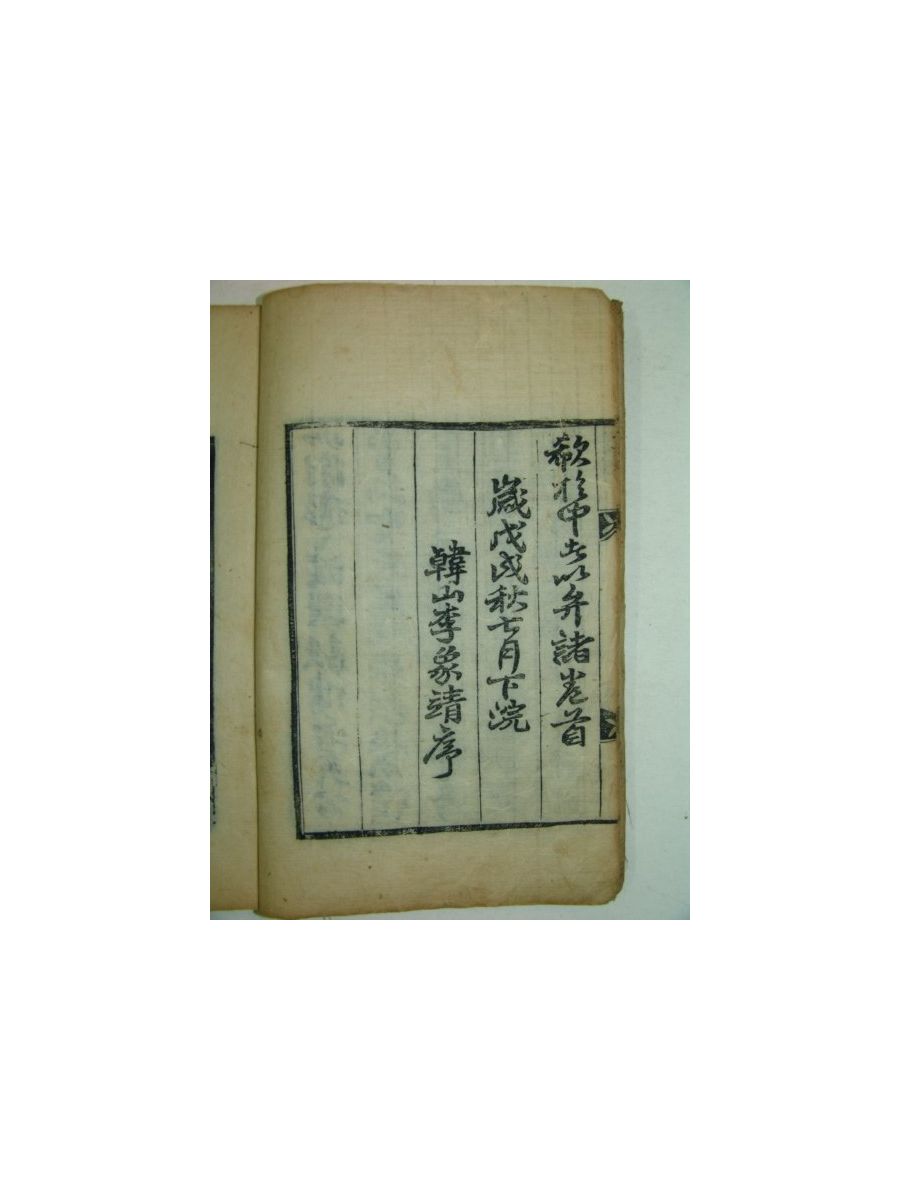 欷於中者以弁諸卷首
歲戊戌秋七月下浣
韓山李象靖序